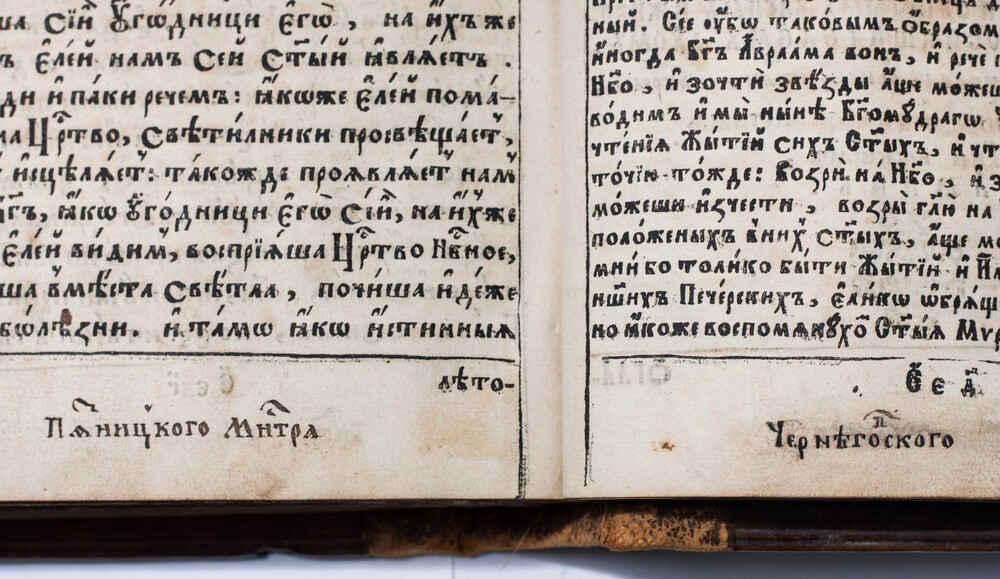 ша Сїѝ Ѹ҆го́дници Є҆гѡ̀ , на ни́хъ же
ъ Є҆ле́й намъ Се́й Ст҃ы́й ꙗ҆вля́етъ .
ди и҆ па́ки рече́мъ : ꙗ҆́коже Є҆ле́й пома́-
на Цр҃тво , Свѣти́лники просвѣща́етъ ,
и҆сцѣлѧ́етъ : та́кожде проѧвлѧ́етъ на́мъ
ꙗ҆́кѡ Ѹ҆го́дници Є҆гѡ̀ Сі́и , на ни́хъ же
Є҆ле́й ви́димъ , воспрїѧ́ша Цр҃тво Нб҃ное ,
ша в̾мѣ́ста Свѣ́тла , почи́ша и҆дѣ́же
бо́лѣзни . и҆ та́мѡ ꙗ҆́кѡ и҆́стинныѧ
лѣто-
Пꙗ҃ницкого Мнтра
ный . Сїе ѹ҆́бѡ таковы́мъ Ѻ҆́бразом
и҆ногда Бг҃ъ А҆враа́ма во́нъ , и҆ речѐ
Нб҃о , и҆ зочтѝ звѣ́зды а҆́ще мо́жеш
во́димъ и҆ мы̀ ны́нѣ Бг҃омꙋ́драгѡ
чте́нїѧ Жы́тїй си́хъ Ст҃ы́хъ , и҆ чт
то́чїю то́жде : Возрѝ на Нб҃о , и҆ з
мо́жеши и҆зчестѝ , возрѝ гл҃ю на
поло́женыхъ в̾ни́хъ Ст҃ы́хъ , а҆́ще мо
мни́ бо толи́ко бы́ти Жы́тїй и҆
Пече́рскихъ , Є҆ли́кѡ ѡ҆брѧ́щ
но ꙗ҆́коже воспомѧнꙋ́хо Ст҃ы́ѧ Мѵр
Ѕ҃ е д
Чернѣгоского